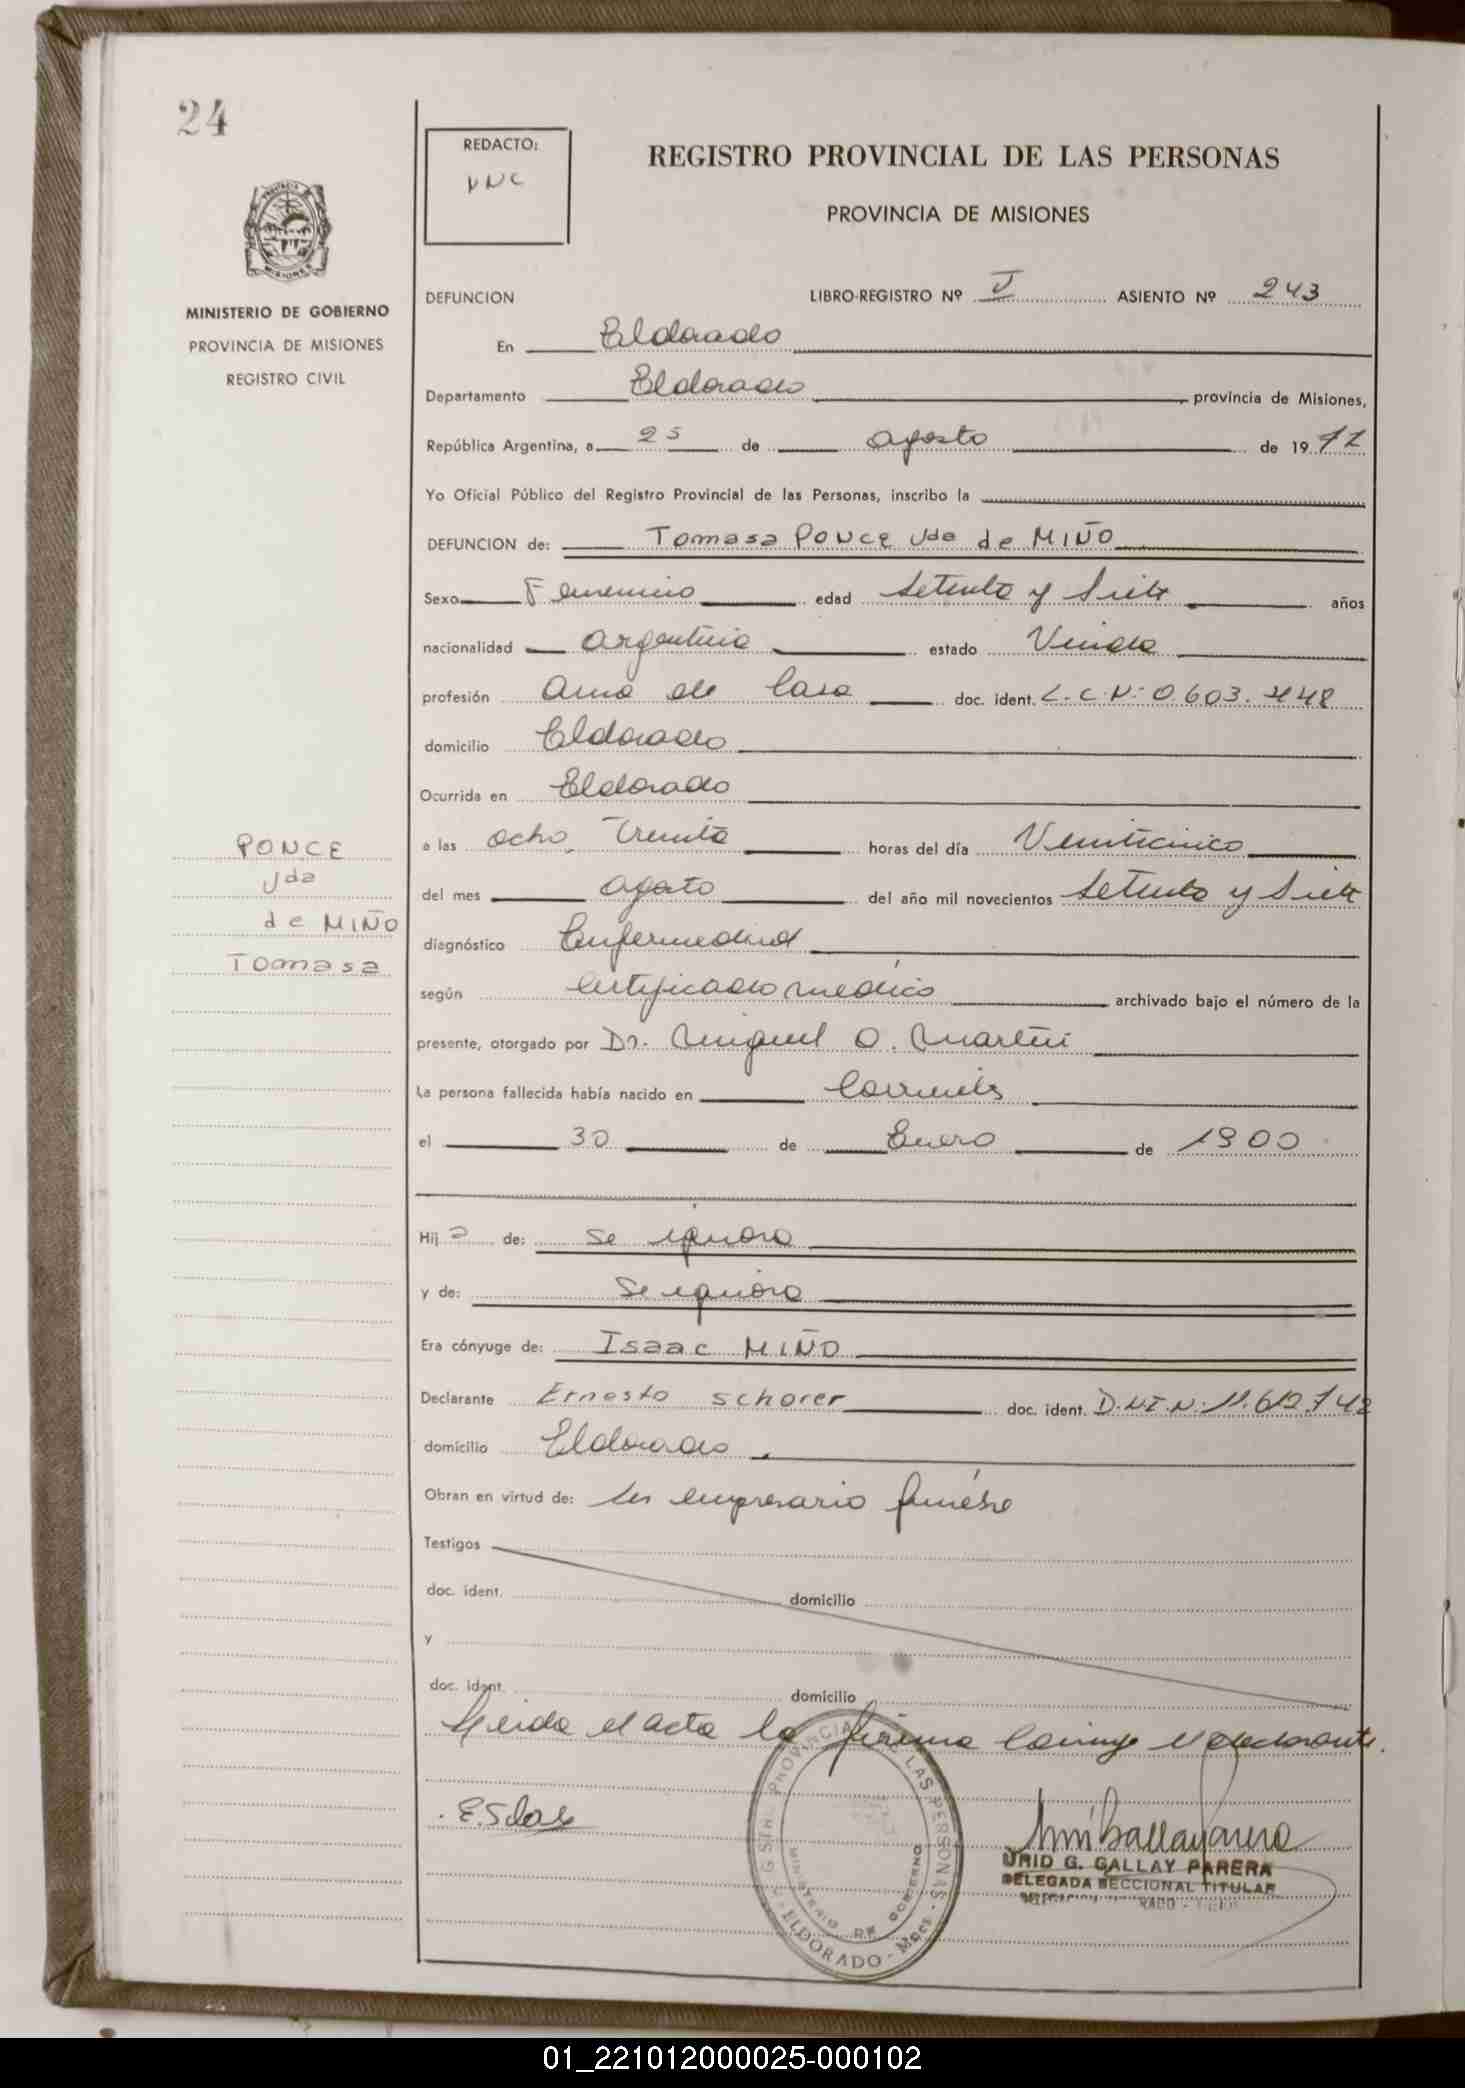 24
REDACTO:
REGISTRO PROVINCIAL DE LAS PERSONAS
PROVINCIA DE MISIONES
MINISTERIO DE GOBIERNO
PROVINCIA DE MISIONES
REGISTRO CIVIL
DEFUNCION LIBRO-REGISTRO Nº ASIENTO Nº 243
En Eldorado
Departamento Eldorado, provincia de Misiones,
República Argentina, a 25 de agosto de 1977
Yo Oficial Público del Registro Provincial de las Personas, inscribo la
DEFUNCION de: Tomasa PONCE Vda de MIÑO
Sexo Femenino edad Setenta y Siete años
nacionalidad argentina estado Viuda
profesión ama de Casa doc. ident. L.C.Nº 0.603.748
domicilio Eldorado
Ocurrida en Eldorado
a las ocho, Treinta horas del día Veinticinco
del mes agosto del año mil novecientos Setenta y Siete
diagnóstico Enfermedad
según Certificado médico archivado bajo el número de la
presente, otorgado por Dr. Miguel O. Martin
La persona fallecida había nacido en Corrientes
el 30 de Enero de 1900
Hija de: se ignora
y de: Se ignora
Era cónyuge de: Isaac MIÑO
Declarante Ernesto schorer doc. ident. D.N.I.N. 11.612.742
domicilio Eldorado.
Obran en virtud de: ser empresario fúnebre
Testigos
doc. ident. domicilio
y
doc. ident. domicilio
Leida el acta la firma Conmigo el declarante.
PONCE
Vda
de MIÑO
Tomasa
REGISTRO PROVINCIAL DE LAS PERSONAS
MINISTERIO DE GOBIERNO
ELDORADO - Mnes
URID G. GALLAY PARERA
DELEGADA SECCIONAL TITULAR
01_221012000025-000102